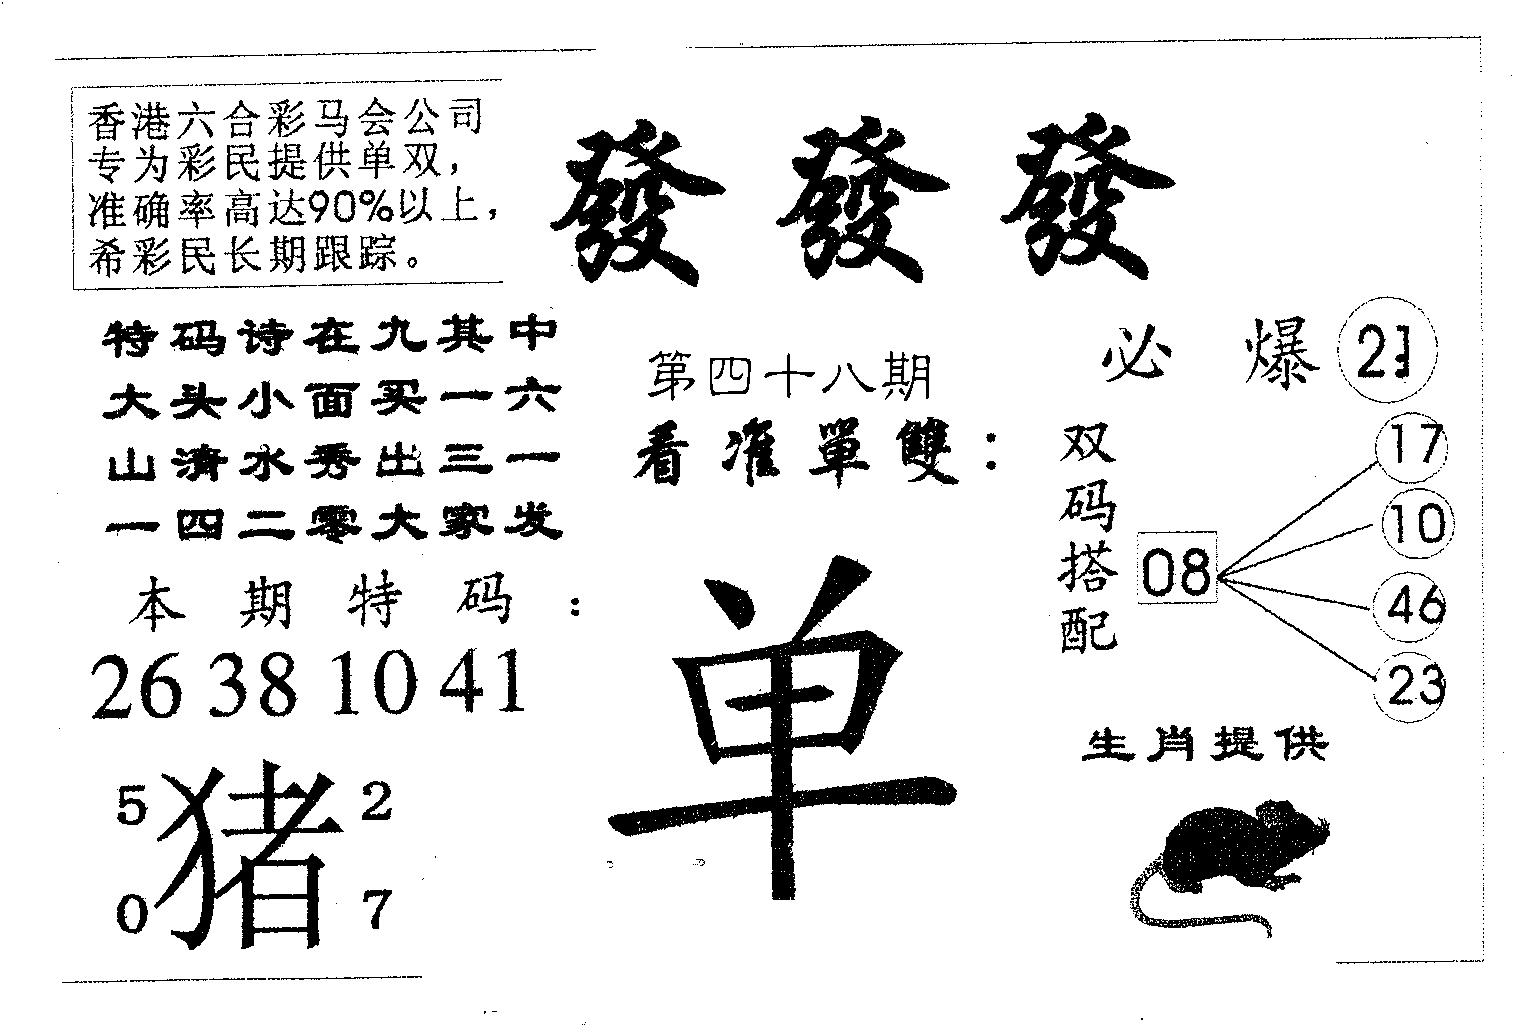 香港六合彩马会公司
专为彩民提供单双，
准确率高达90%以上，
希彩民长期跟踪。
發 發 發
特码诗在九其中
大头小面买一六
山清水秀出三一
一四二零大家发
第四十八期
看准單雙：
单
本期特码：
26 38 10 41
5 猪 2
0 7
必爆
双码搭配
08
17
10
46
23
生肖提供